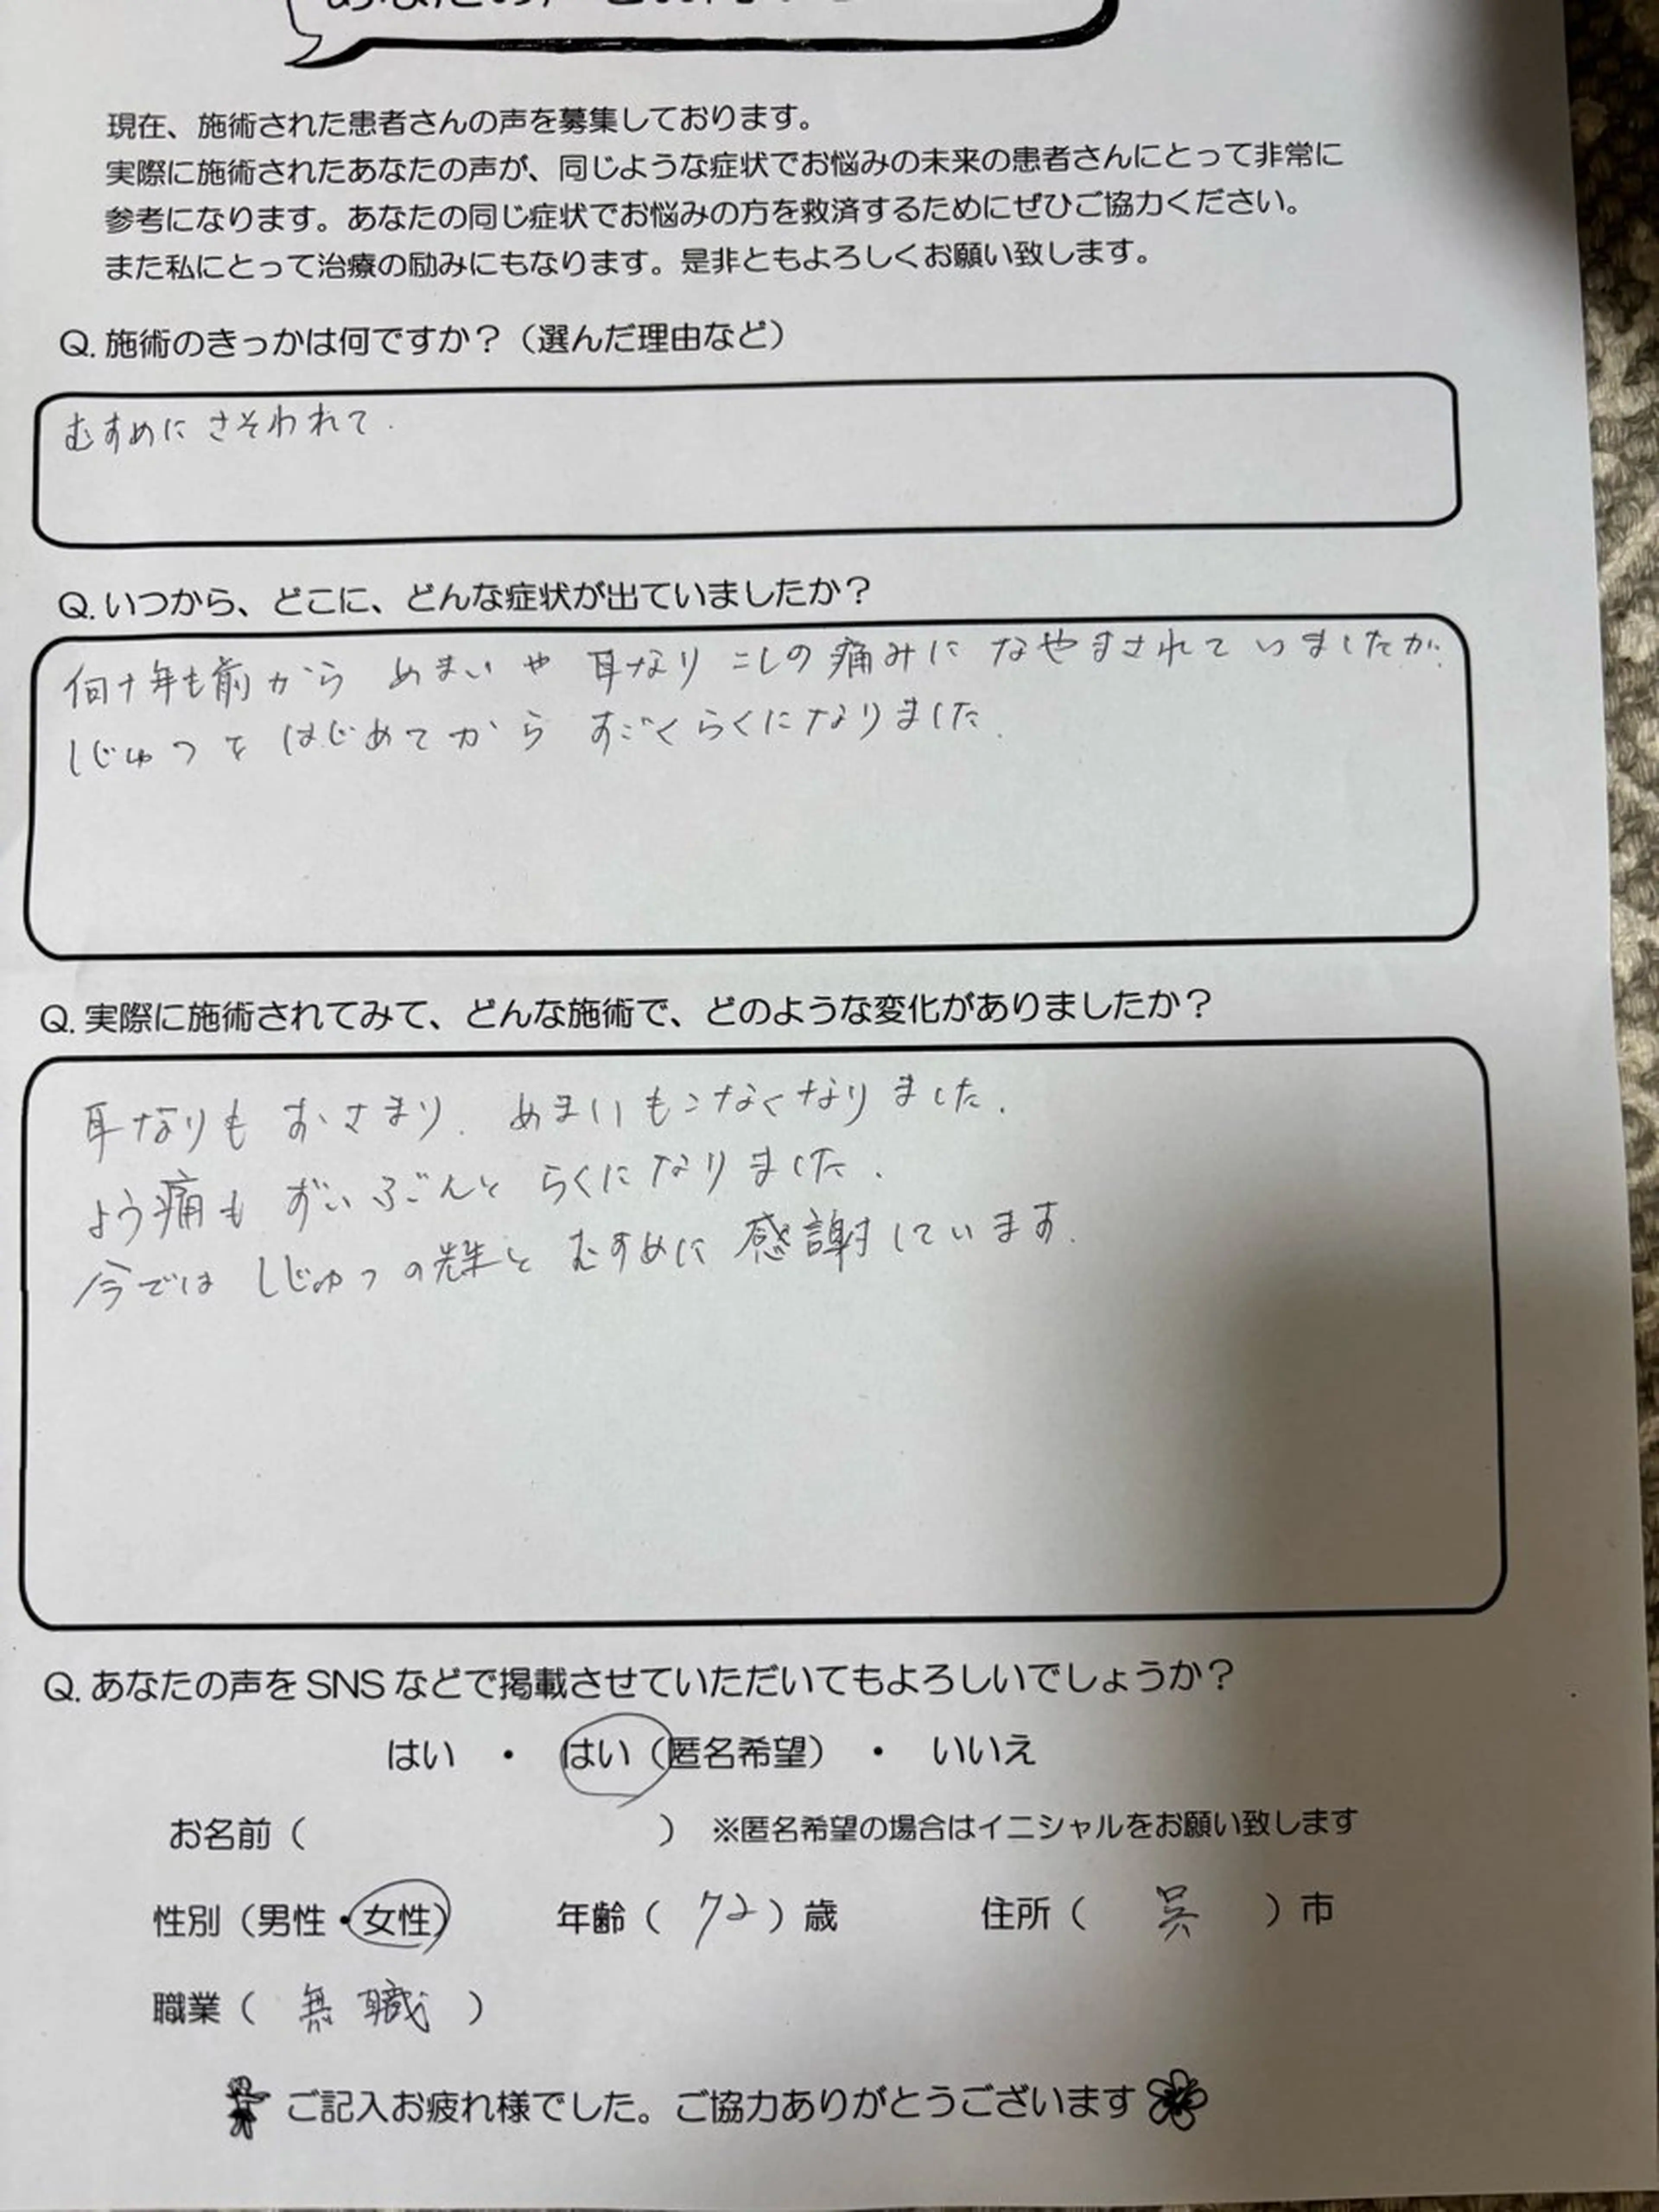 現在、施術された患者さんの声を募集しております。
実際に施術されたあなたの声が、同じような症状でお悩みの未来の患者さんにとって非常に
参考になります。あなたの同じ症状でお悩みの方を救済するためにぜひご協力ください。
また私にとって治療の励みにもなります。是非ともよろしくお願い致します。
Q. 施術のきっかは何ですか？（選んだ理由など）
むすめに さそわれて.
Q. いつから、どこに、どんな症状が出ていましたか？
何十年も前から めまいや 耳なり こしの痛みに なやまされて いましたが.
しじゅつを はじめてから すごくらくになりました.
Q. 実際に施術されてみて、どんな施術で、どのような変化がありましたか？
耳なりも おさまり. めまいもこなくなりました.
よう痛も ずいぶんと らくになりました.
今では しじゅつの先生と むすめに 感謝しています.
Q. あなたの声をSNSなどで掲載させていただいてもよろしいでしょうか？
はい ・ はい（匿名希望） ・ いいえ
お名前（ ） ※匿名希望の場合はイニシャルをお願い致します
性別（男性・女性） 年齢（ 72 ）歳 住所（ 呉 ）市
職業（ 無職 ）
ご記入お疲れ様でした。ご協力ありがとうございます